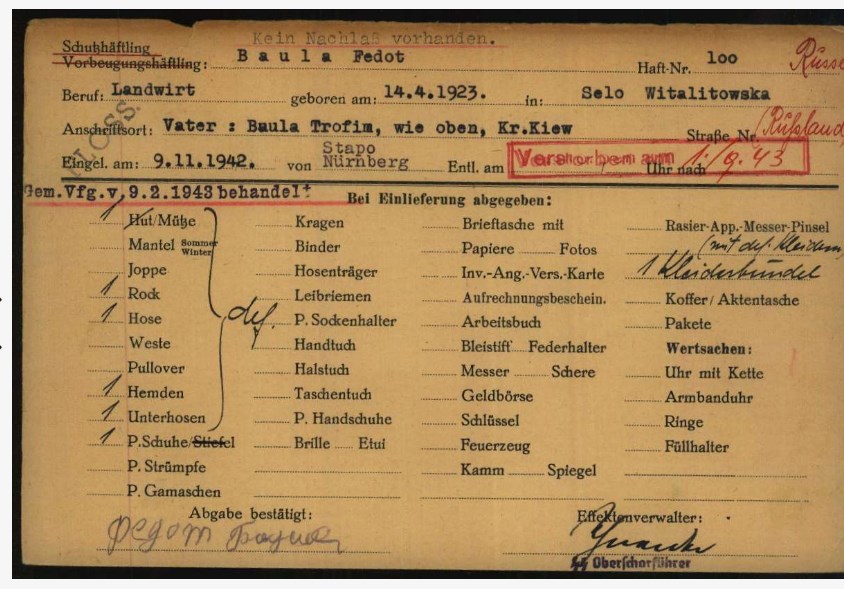 Kein Nachlaß vorhanden.
Schutzhäftling
Vorbeugungshäftling: Baula Fedot Haft-Nr. 100 Russe
Beruf: Landwirt geboren am: 14.4.1923. in: Selo Witalitowska
FLOSS.
Anschriftsort: Vater : Baula Trofim, wie oben, Kr.Kiew Straße Nr. (Rußland
Eingel. am: 9.11.1942. von Stapo Nürnberg Entl. am Verstorben am 1.9.43 Uhr nach
Gem.Vfg.v. 9.2.1943 behandelt
Bei Einlieferung abgegeben:
1 Hut/Mütze Kragen Brieftasche mit Rasier-App.-Messer-Pinsel
Mantel Sommer Winter Binder Papiere Fotos (mit def. Kleidern
Joppe Hosenträger Inv.-Ang.-Vers.-Karte 1 Kleiderbündel
1 Rock Leibriemen Aufrechnungsbeschein. Koffer/Aktentasche
1 Hose def. P. Sockenhalter Arbeitsbuch Pakete
Weste Handtuch Bleistift Federhalter Wertsachen:
Pullover Halstuch Messer Schere Uhr mit Kette
1 Hemden Taschentuch Geldbörse Armbanduhr
1 Unterhosen P. Handschuhe Schlüssel Ringe
1 P.Schuhe/Stiefel Brille Etui Feuerzeug Füllhalter
P. Strümpfe Kamm Spiegel
P. Gamaschen
Abgabe bestätigt: Effektenverwalter:
Федот
SS Oberscharführer